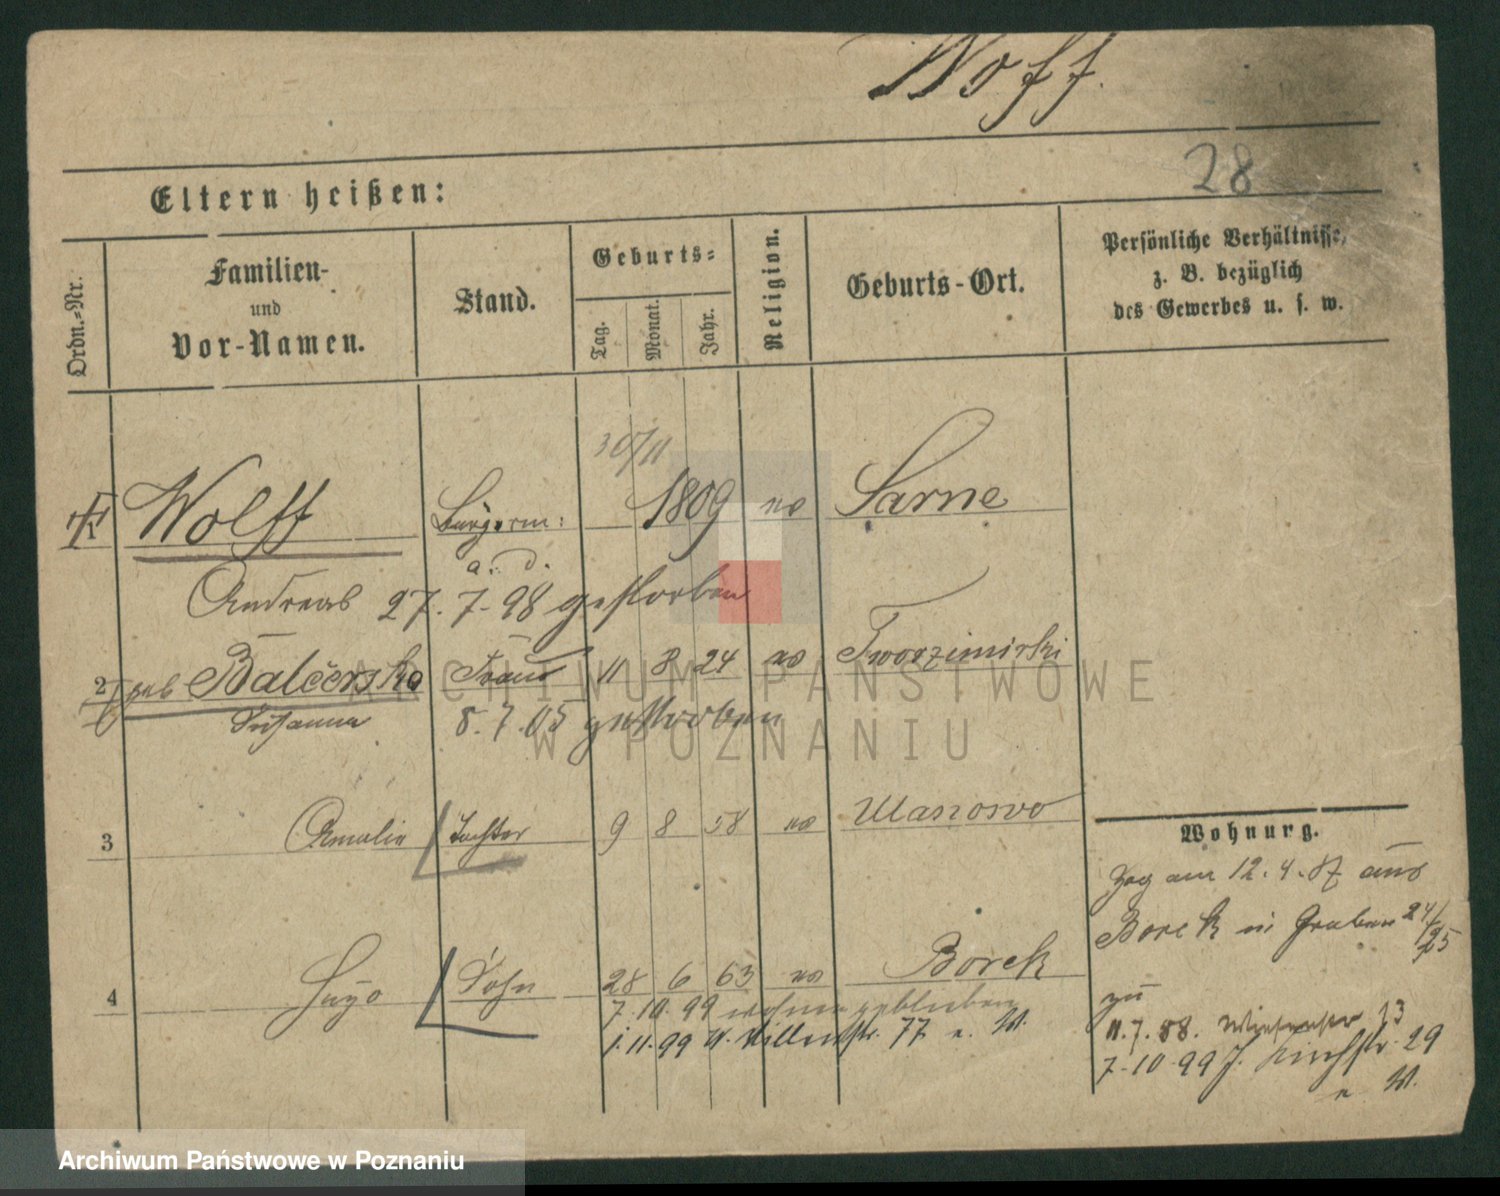 Wolff.
28
Eltern heißen:
Ordn.-Nr.
Familien-
und
Vor-Namen.
Stand.
Geburts-
Tag.
Monat.
Jahr.
Religion.
Geburts-Ort.
Persönliche Verhältnisse,
z. B. bezüglich
des Gewerbes u. s. w.
30/11
Wolff Bürgerm: 1809 Sarne
a. D.
Andreas 27. 7. 98 gestorben
2 geb Balcerska Frau 11 8 24
Susanna 8. 7. 05 gestorben
3 Amalie Tochter 9 8 58
4 Hugo Sohn 28 6 63 Borek
7. 10. 99 wohnen geblieben
1. 11. 99 77 n. W.
Wohnung.
Zog am 12. 4. 87 aus
Borek in Graben 24/25
zu
11. 7. 88. 13
7-10-99 J. Kirchstr. 29
n W.
ARCHIWUM PAŃSTWOWE
W POZNANIU
Archiwum Państwowe w Poznaniu